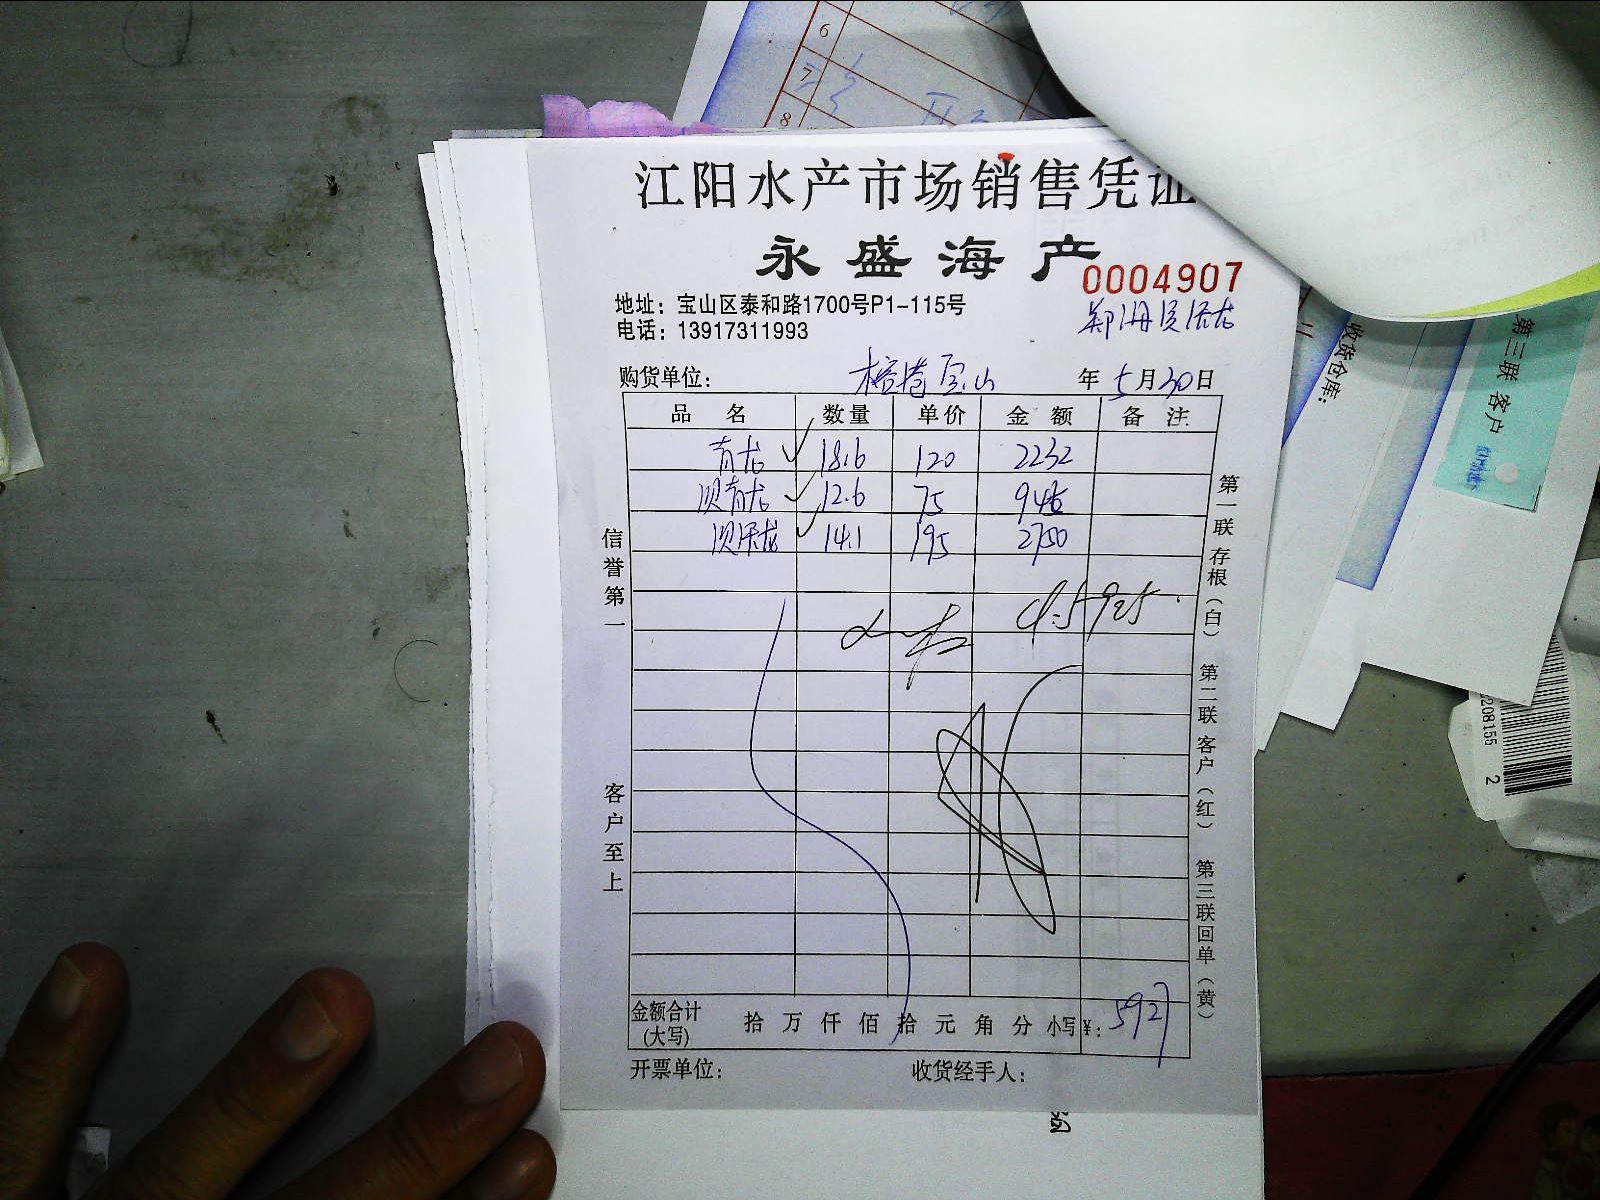 6
7
8
江阳水产市场销售凭证
永盛海产
0004907
地址：宝山区泰和路1700号P1-115号
电话：13917311993
购货单位： 宝山 年5月30日
品名 数量 单价 金额 备注
青龙 18.6 120 2232
贝青龙 12.6 75 945
14.1 195 2750
5925
信誉第一
客户至上
第一联存根（白） 第二联客户（红） 第三联回单（黄）
金额合计（大写） 拾万仟佰拾元角分 小写¥：5927
开票单位： 收货经手人：
收货仓库：
第三联 客户
208155 2